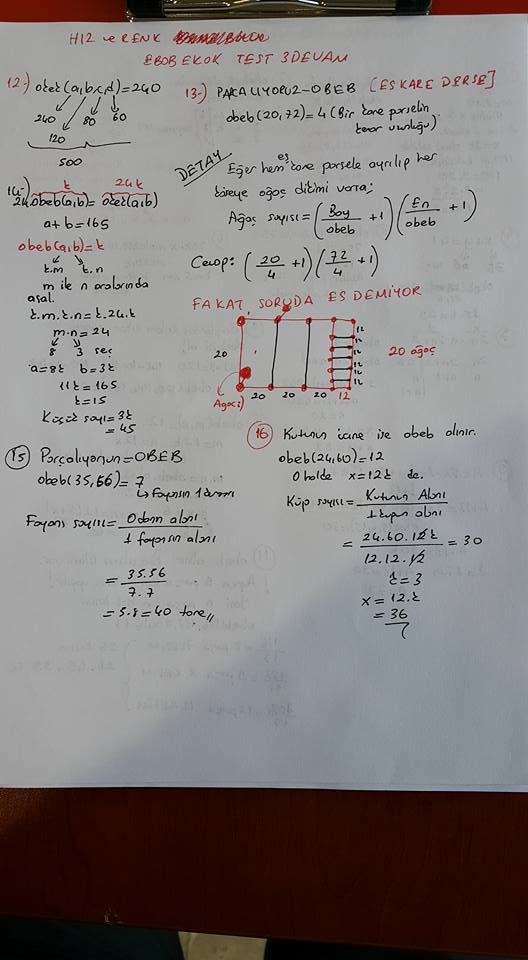 HIZ ve RENK
EBOB EKOK TEST 3 DEVAM
12-) okek(a,b,c,d)=240
240 80 60
120
500
14-) t 24t
24.obeb(a,b)= okek(a,b)
a+b=165
obeb(a,b)=t
t.m t.n
m ile n aralarında
asal.
t.m.t.n=t.24.t
m.n=24
8 3 seç
a=8t b=3t
11t=165
t=15
Küçük sayı=3t
=45
13-) PARÇALIYORUZ-OBEB [EŞ KARE DERSE]
obeb(20,72)=4 (Bir kare parselin
kenar uzunluğu).
DETAY
Eğer hem eş kare parsele ayrılıp her
köşeye ağaç dikimi varsa;
Ağaç sayısı=(Boy/obeb +1)(En/obeb +1)
Cevap: (20/4 +1)(72/4 +1)
FAKAT, SORUDA EŞ DEMİYOR
12
12
12
12
12
20
20 ağaç
20 20 20 12
Ağaç
15 Parçalıyorum=OBEB
obeb(35,56)=7
↳ Fayansın 1 kenarı
Fayans sayısı= Odanın alanı / 1 fayansın alanı
= 35.56 / 7.7
=5.8=40 tane,,
16 Kutunun içine ise obeb alınır.
obeb(24,60)=12
O halde x=12t de.
Küp sayısı= Kutunun Alanı / 1 küpün alanı
= 24.60.12t / 12.12.12 =30
t=3
x=12.t
=36